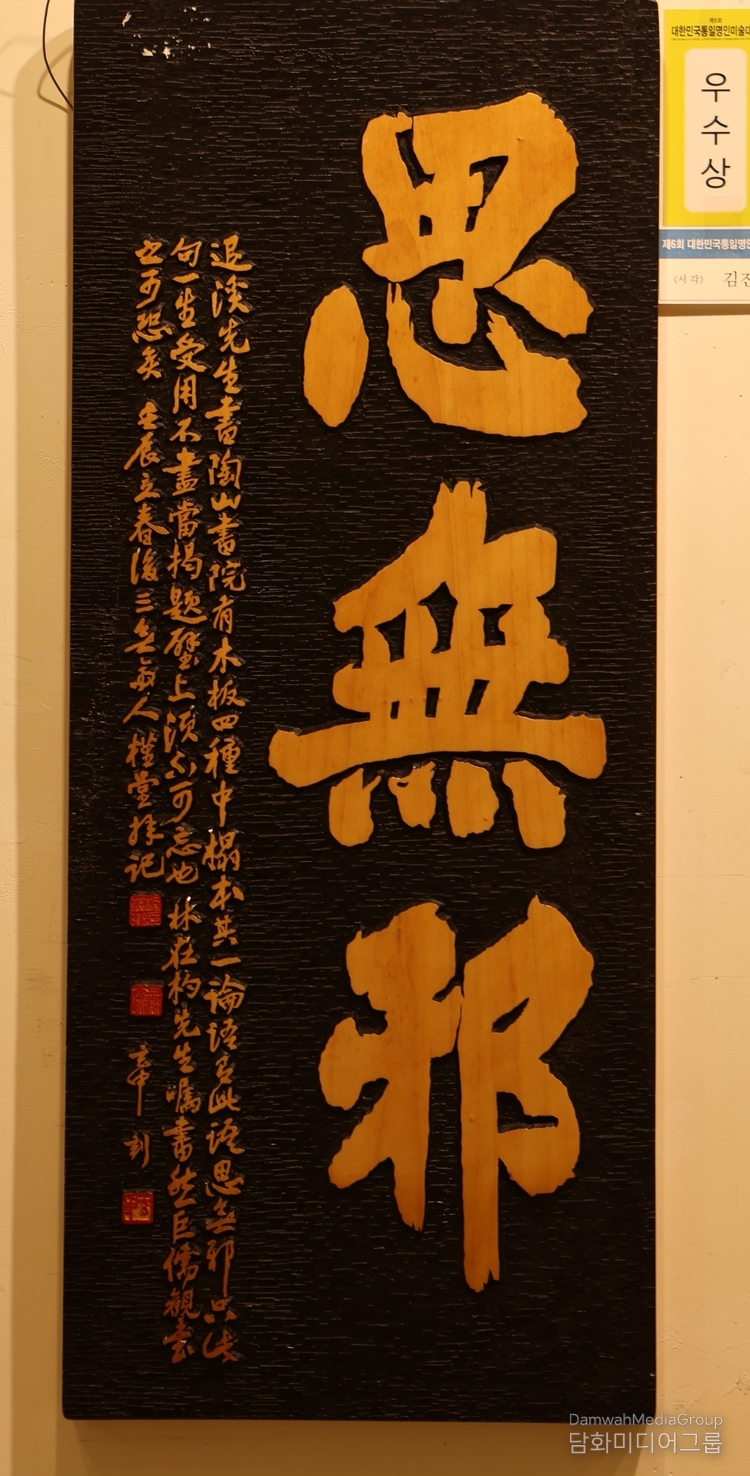 思無邪
退溪先生書陶山書院有木板四種中搨本其一論語
此語思無邪只此
句一生受用不盡當揭題壁上須
可忘也
先生囑書
巨儒觀
也可恐矣
壬辰立春後三
人
記
刻
제6회
대한민국통일명인미술대
우수상
제6회 대한민국통일명인
〈서각〉
김진
DamwahMediaGroup
담화미디어그룹